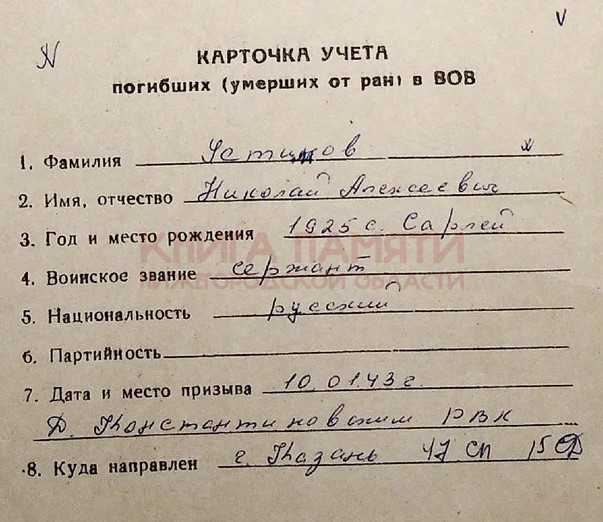 N
V
КАРТОЧКА УЧЕТА
погибших (умерших от ран) в ВОВ
1. Фамилия Устинов
2. Имя, отчество Николай Алексеевич
3. Год и место рождения 1925 с. Сарлей
КНИГА ПАМЯТИ
4. Воинское звание сержант
НИЖЕГОРОДСКОЙ ОБЛАСТИ
5. Национальность русский
6. Партийность
7. Дата и место призыва 10.01.43 г.
Д. Константиновским РВК
8. Куда направлен г. Казань 47 СП 15 СД